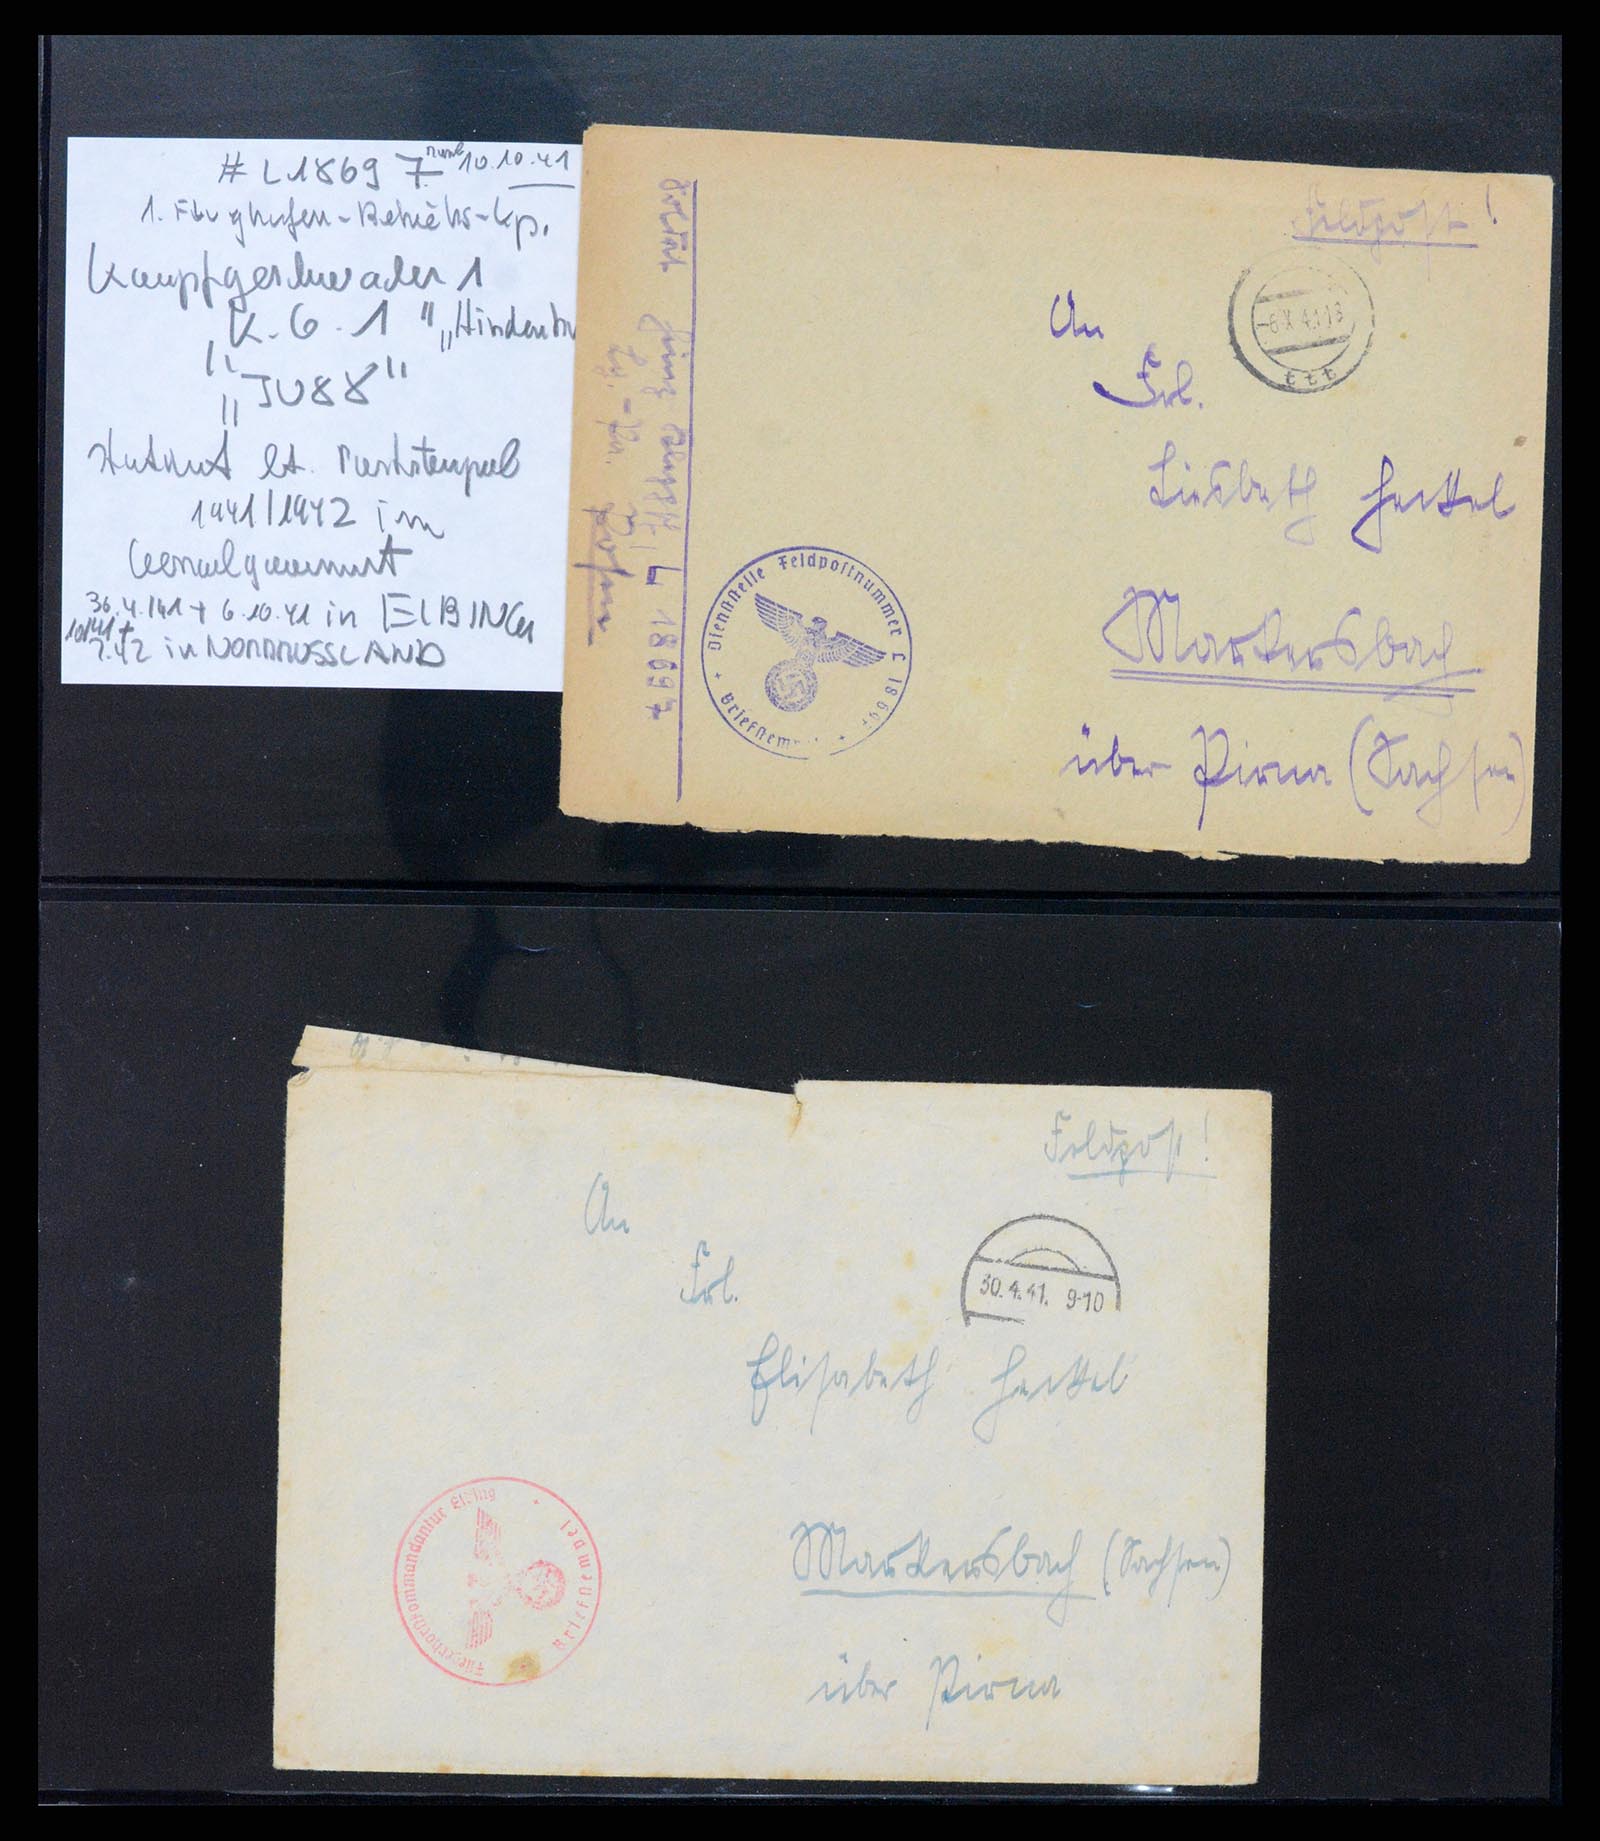 # L1869 7 10.10.41
1. Flughafen-Betriebs-Kp.
Kampfgeschwader 1
K.G.1 "„Hindenbu
"JU88"
lt. Poststempel
1941/1942 im
30.4.141 + 6.10.41 in ELBING
10/41 +
2.42 in NORDRUSSLAND
Feldpost!
-6.X.41.18
ttt
An
Frl.
Liesbeth Hertel
Markersbach
über Pirna (Sachsen)
Soldat Heinz
L 18697
Lg.-Pa. Posen
Dienststelle Feldpostnummer L 1869
Briefstem
Feldpost!
30.4.41. 9-10
An
Frl.
Elisabeth Hertel
Markersbach (Sachsen)
über Pirna
Fliegerhorstkommandantur Elbing
Briefstempel